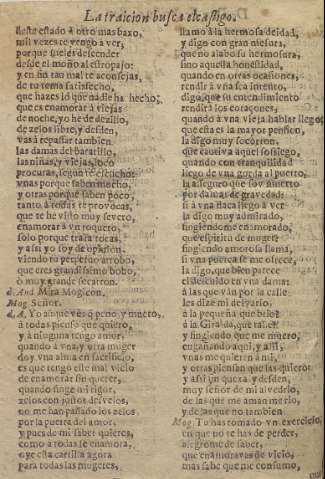 La traicion busca el castigo.
de este estado à otro mas baxo,
mil vezes te vengo à ver,
porque sueles descender
desde el moño al estropajo:
y en fin tan mal te aconsejas,
de tu tema satisfecho,
que hazes lo que nadie ha hecho;
que es enamorar à viejas
de noche, yo he de dezillo,
de zelos libre, y desden,
vas à repassar tambien
las damas del baratillo,
las niñas, y viejas, loco
procuras, segun te escucho:
vnas porque saben mucho,
y otras porque saben poco,
tanto à todas te provocas,
que te he visto muy severo,
enamorar à vn roquero,
solo porque trata tocas,
y assi yo soy de opinion
viendo tu perpetuo arrobo,
que eres grandissimo bobo,
ò muy grande socarron.
d. And. Mira Mogicon.
Mog. Señor.
d. A. Yo aunque vès q̃ peno, y muero,
à todas pienso que quiero,
y à ninguna tengo amor:
quando à vna, y otra muger
doy vna alma en sacrificio,
es que tengo este mal vicio
de enamorar sin querer,
quando finge mi rigor,
zelos con justos desvelos,
no me han passado los zelos
por la puerta del amor,
y pues de mi saber quieres,
como à todas se enamora,
oye esta cartilla agora
para todas las mugeres,
llamo à la hermosa deidad,
y digo con gran mesura,
que no alabo su hermosura,
sino aquella honestidad,
quando en otras ocasiones,
rendir à vna fea intento,
digo, que su entendimiento
rendirà los coraçones,
quando à vna vieja hablar llego,
que esta es la mayor pension,
la digo muy socarron,
que cautiva aquel sossiego,
quando con tranquilidad
llego de vna gorda al puerto,
la asseguro que soy muerto
por damas de gravedad:
si à vna flaca llego à ver
la digo muy admirado,
fingiendome enamorado,
que espiritu de muger:
fingiendo amorosa llama,
si vna puerca se me ofrece,
la digo, que bien parece
el descuido en vna dama:
à las que vàn por la calle
les dize mi delvario,
à la pequeña que belo:
à la Giralda, que talle:
y fingiendo que me muero,
engañando aqui, y alli,
vnas me quieren à mi,
y otras piensan que las quiero:
y assi sin quexa, y desden,
muy señor de mi alvedrio,
de las que me aman me rio,
y de las que no tambien
Mog. Tu has tomado vn exercicio,
en que no te has de perder,
alegrome de saber,
que enamoravas de vicio,
mas sabe que me consumo,